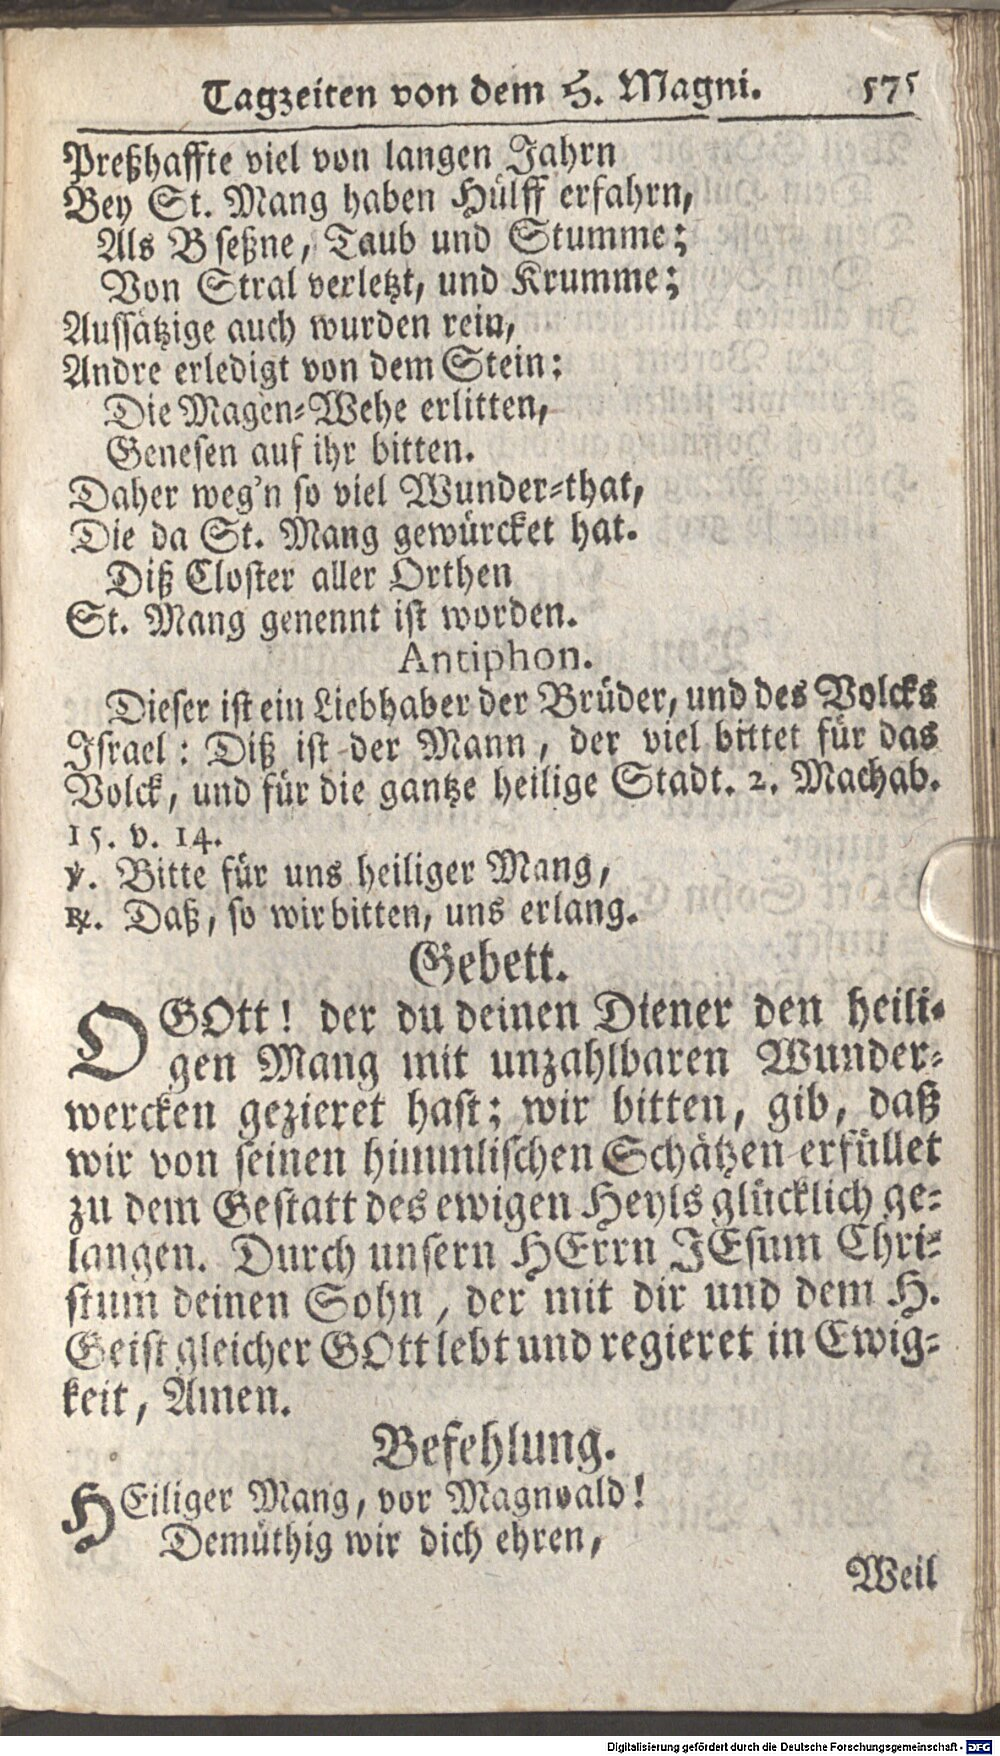 Tagzeiten von dem H. Magni. 575
Preßhaffte viel von langen Jahrn
Bey St. Mang haben Hülff erfahrn,
Als B seßne, Taub und Stumme;
Von Stral verletzt, und Krumme;
Aussätzige auch wurden rein,
Andre erledigt von dem Stein:
Die Magen-Wehe erlitten,
Genesen auf ihr bitten.
Daher weg'n so viel Wunder-that,
Die da St. Mang gewürcket hat.
Diß Closter aller Orthen
St. Mang genennt ist worden.
Antiphon.
Dieser ist ein Liebhaber der Brüder, und des Volcks
Israel: Diß ist der Mann, der viel bittet für das
Volck, und für die gantze heilige Stadt. 2. Machab.
15. v. 14.
℣. Bitte für uns heiliger Mang,
℟. Daß, so wir bitten, uns erlang.
Gebett.
O GOtt! der du deinen Diener den heili-
gen Mang mit unzahlbaren Wunder-
wercken gezieret hast; wir bitten, gib, daß
wir von seinen himmlischen Schätzen erfüllet
zu dem Gestatt des ewigen Heyls glücklich ge-
langen. Durch unsern HErrn JEsum Chri-
stum deinen Sohn, der mit dir und dem H.
Geist gleicher GOtt lebt und regieret in Ewig-
keit, Amen.
Befehlung.
HEiliger Mang, vor Magnoald!
Demüthig wir dich ehren,
Weil
Digitalisierung gefördert durch die Deutsche Forschungsgemeinschaft - DFG